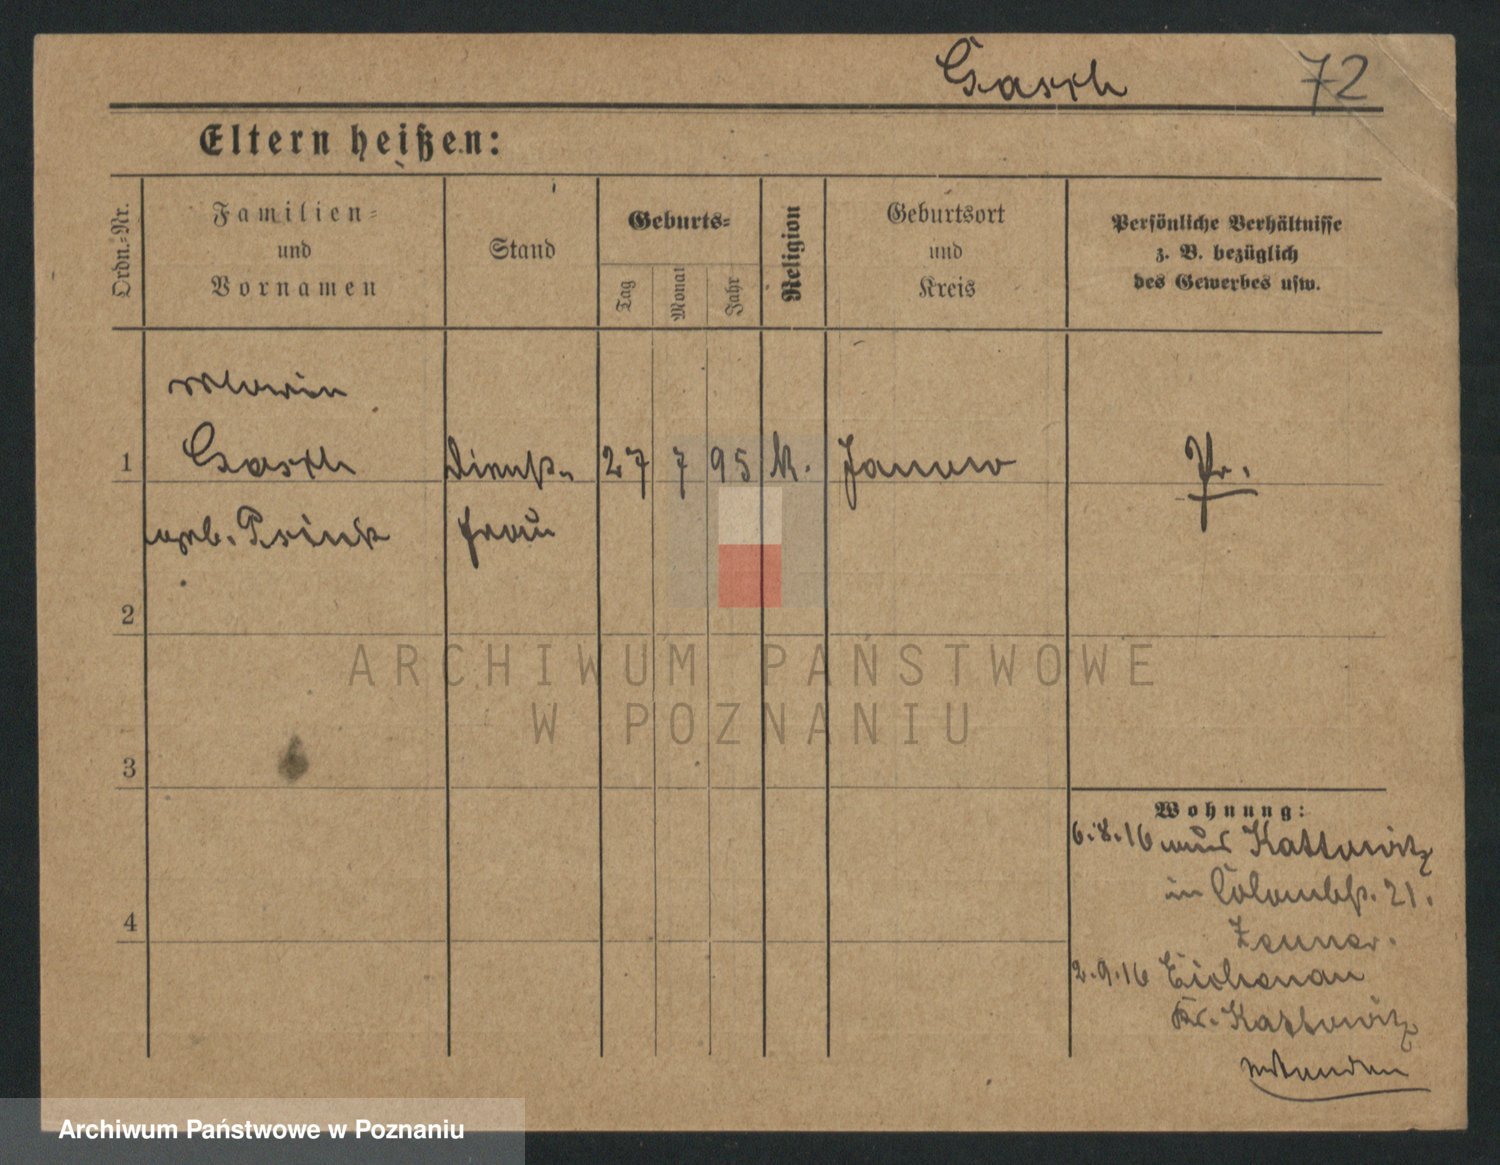 Gasch 72
Eltern heißen:
Ordn.=Nr.
Familien=
und
Vornamen
Stand
Geburts=
Tag
Monat
Jahr
Religion
Geburtsort
und
Kreis
Persönliche Verhältnisse
z. B. bezüglich
des Gewerbes usw.
Maria
1 Gasch Dienst- 27 7 95 K. Janow Pr.
geb. frau
2
3
4
ARCHIWUM PAŃSTWOWE
W POZNANIU
Wohnung:
6.8.16 aus Kattowitz
in Colombstr. 21.
2.9.16 Eichenau
Kr. Kattowitz
Archiwum Państwowe w Poznaniu